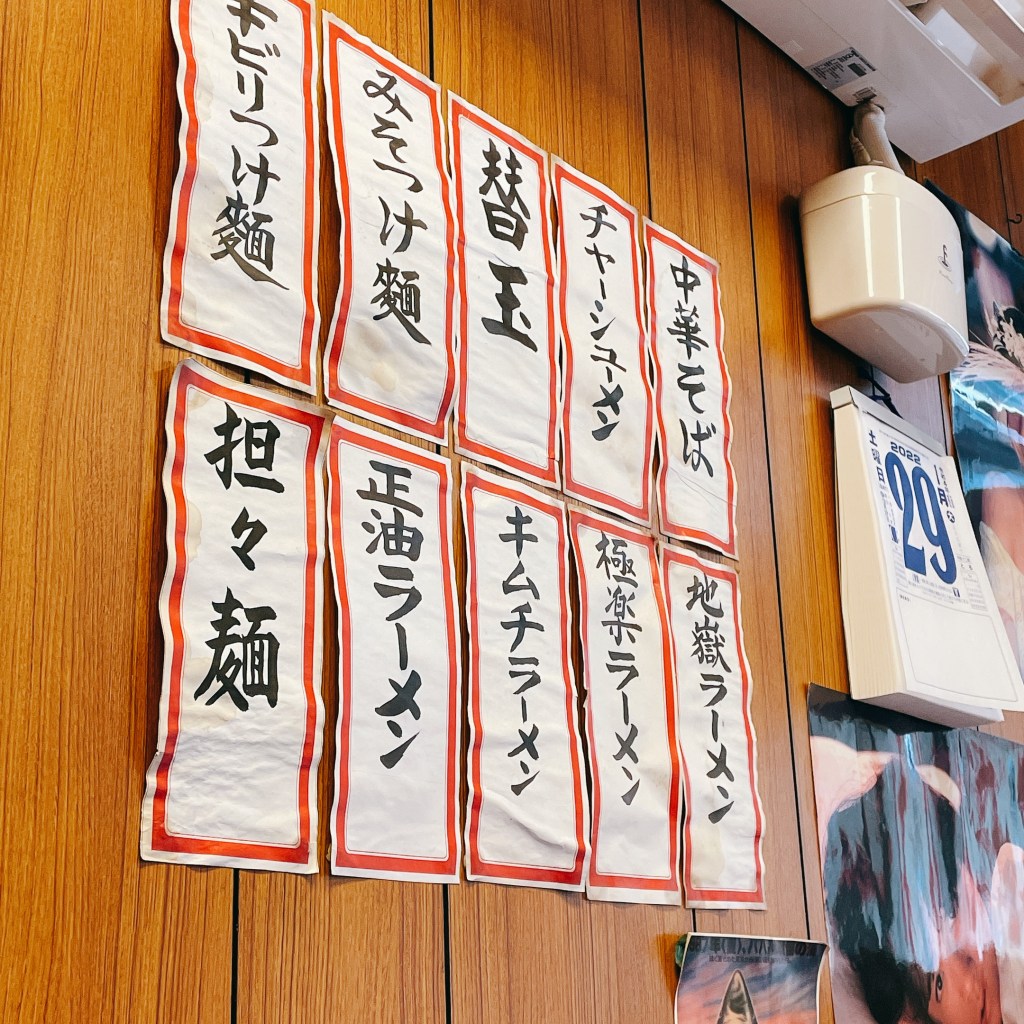 中華そば
チャーシューメン
替玉
みそつけ麵
ビリつけ麵
地嶽ラーメン
極楽ラーメン
キムチラーメン
正油ラーメン
担々麺
2022
1月
29
土曜日